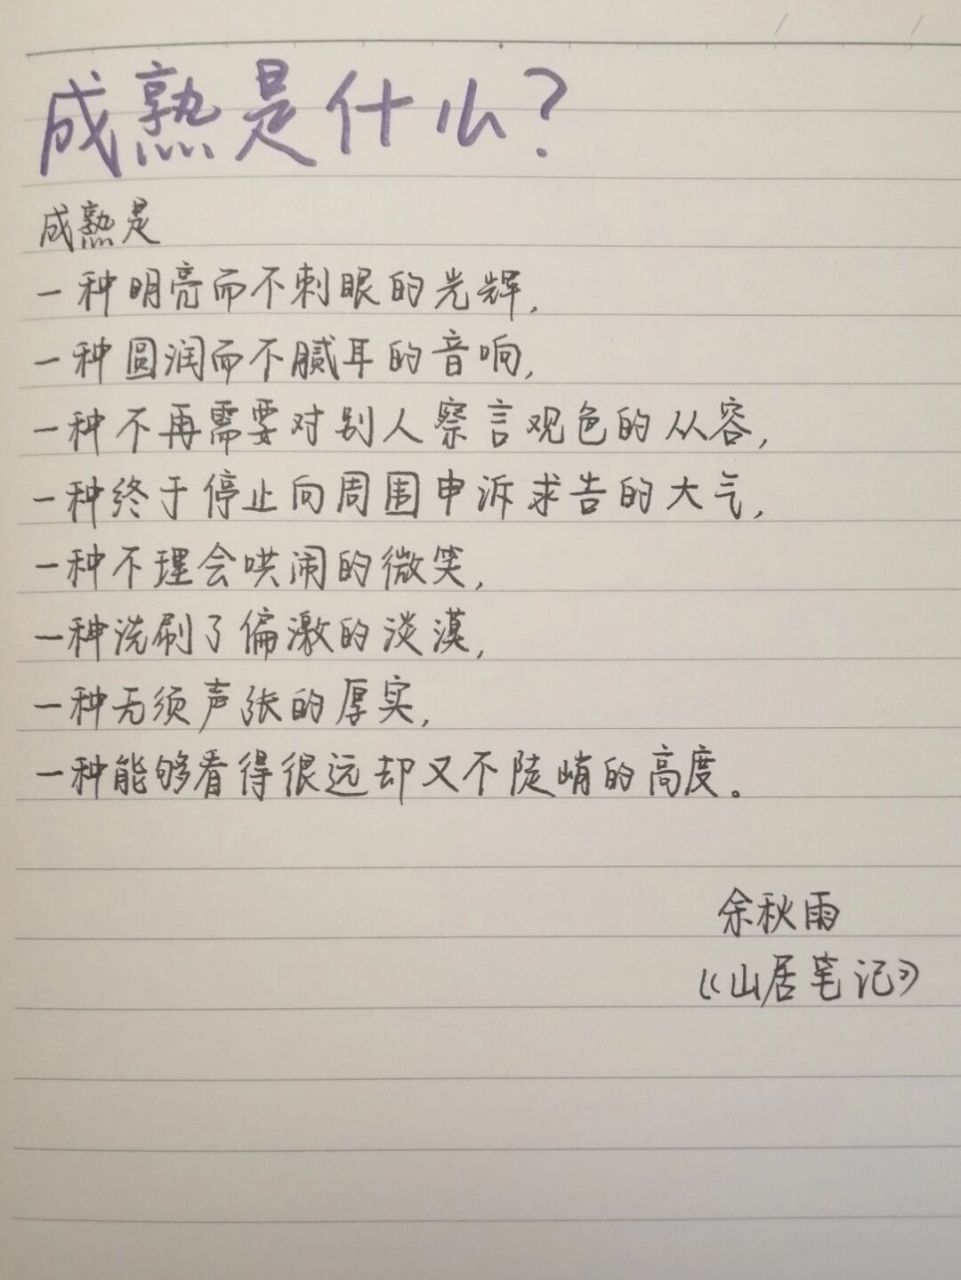 成熟是什么?
成熟是
一种明亮而不刺眼的光辉,
一种圆润而不腻耳的音响,
一种不再需要对别人察言观色的从容,
一种终于停止向周围申诉求告的大气,
一种不理会哄闹的微笑,
一种洗刷了偏激的淡漠,
一种无须声张的厚实,
一种能够看得很远却又不陡峭的高度。
余秋雨
《山居笔记》